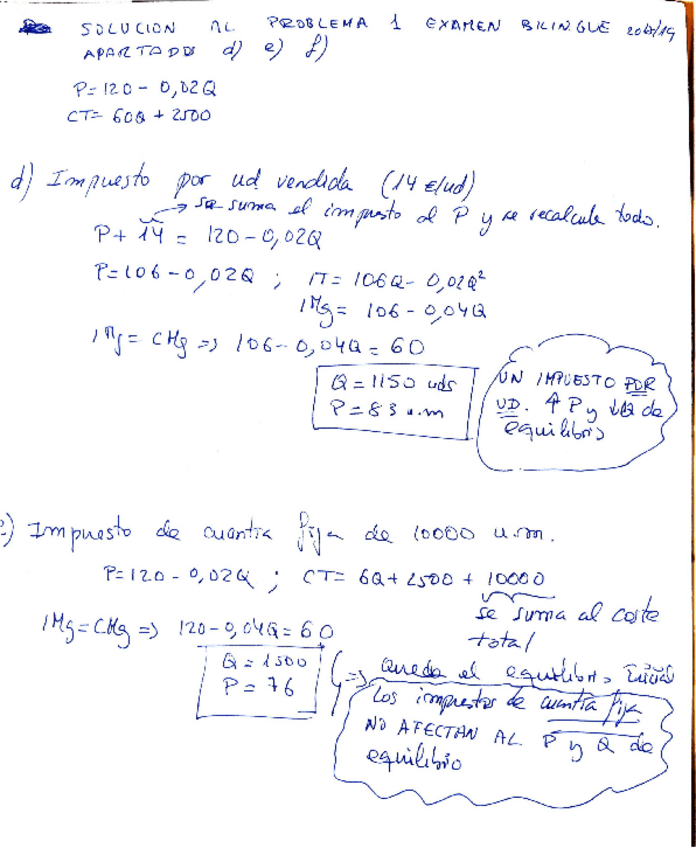 SOLUCION AL PROBLEMA 1 EXAMEN BILINGUE 2018/19
APARTADOS d) e) f)
P=120-0,02Q
CT= 60Q + 2500
d) Impuesto por ud vendida (14 €/ud)
→ se suma el impuesto al P y se recalcula todo.
P+14 = 120-0,02Q
P=106-0,02Q ; IT= 106Q-0,02Q²
IMg= 106-0,04Q
IMg= CMg => 106-0,04Q=60
Q=1150 uds
P=83 u.m
UN IMPUESTO POR
UD. ↑P y ↓Q de
equilibrio
e) Impuesto de cuantía fija de 10000 u.m.
P=120-0,02Q ; CT= 6Q+2500+10000
se suma al coste
total
IMg=CMg => 120-0,04Q=60
Q=1500
P=76
=> Queda el equilibrio inicial
Los impuestos de cuantía fija
NO AFECTAN AL P y Q de
equilibrio